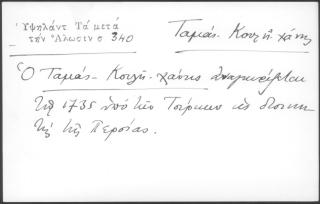 Ὑψηλάντ Τά μετά
τήν Ἅλωσιν σ 340
Ταμάς - Κουλῆ - χάνης
Ὁ Ταμάς - Κουλῆ - χάνης ἀναγνωρίζεται
τῷ 1735 ὑπό τῶν Τούρκων ὡς διοικη-
τής τῆς Περσίας.